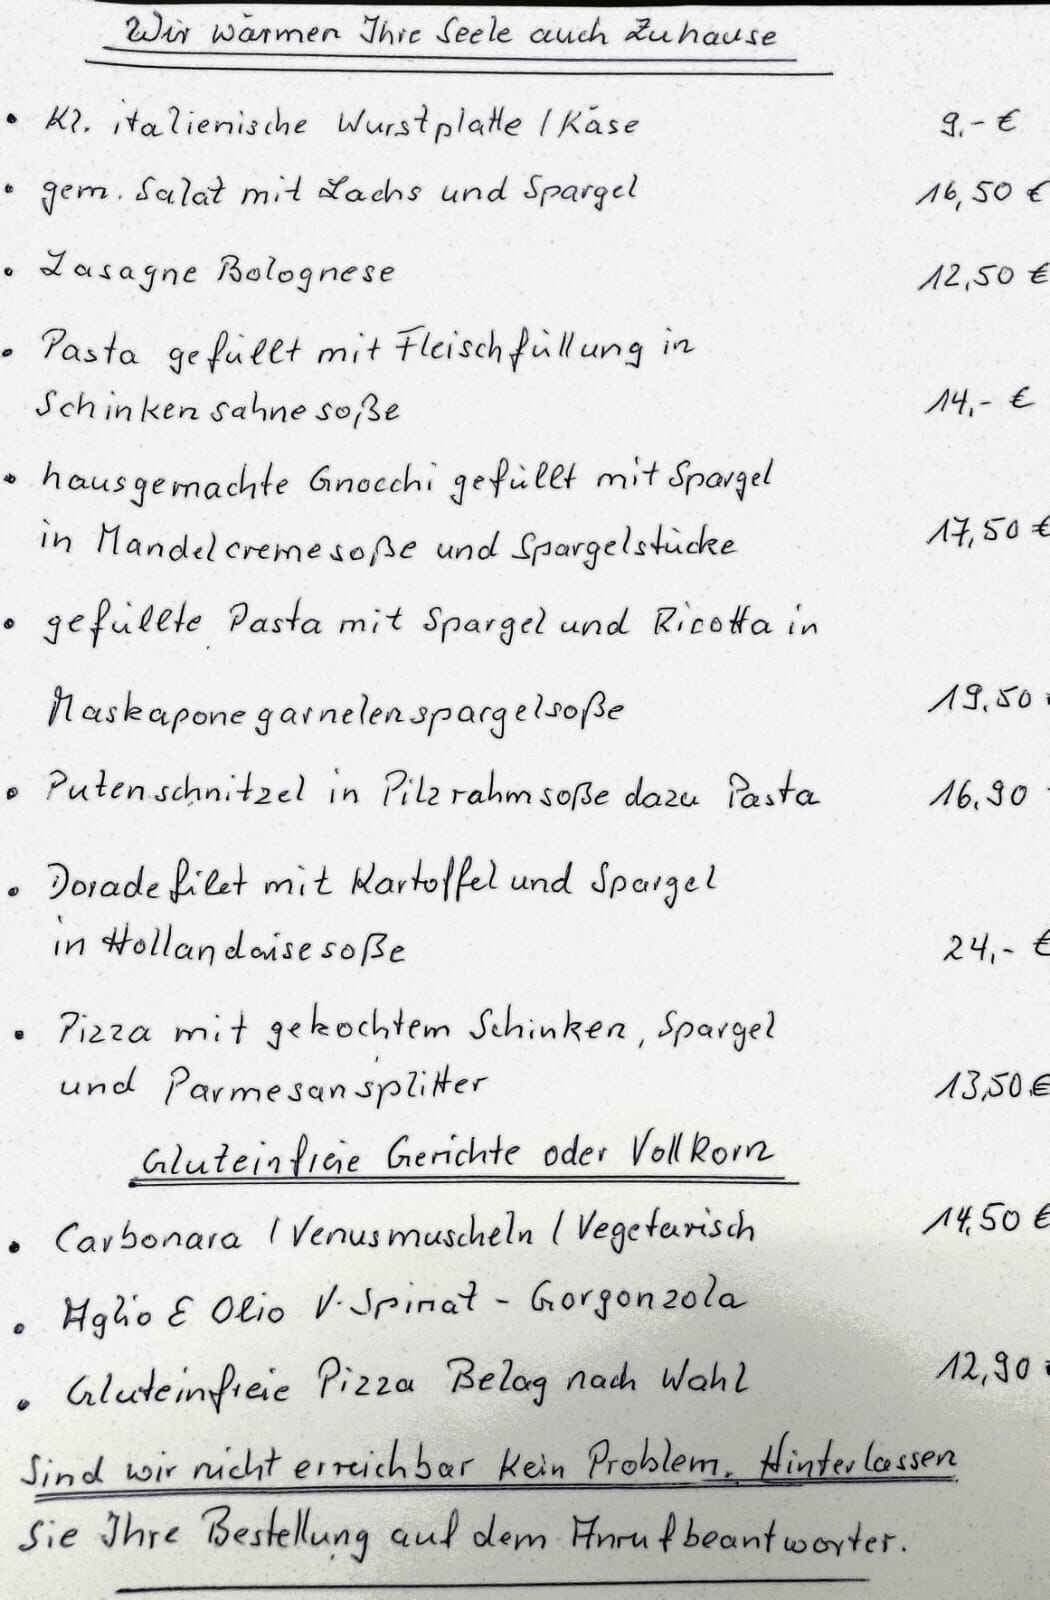 Wir wärmen Ihre Seele auch Zuhause
• Kl. italienische Wurstplatte / Käse 9,- €
• gem. Salat mit Lachs und Spargel 16,50 €
• Lasagne Bolognese 12,50 €
• Pasta gefüllt mit Fleischfüllung in
Schinkensahnesoße 14,- €
• hausgemachte Gnocchi gefüllt mit Spargel
in Mandelcremesoße und Spargelstücke 17,50 €
• gefüllte Pasta mit Spargel und Ricotta in
Maskaponegarnelenspargelsoße 19.50
• Putenschnitzel in Pilzrahmsoße dazu Pasta 16,90
• Doradefilet mit Kartoffel und Spargel
in Hollandaisesoße 24,- €
• Pizza mit gekochtem Schinken, Spargel
und Parmesansplitter 13,50 €
Gluteinfreie Gerichte oder Vollkorn
• Carbonara / Venusmuscheln / Vegetarisch 14,50 €
• Aglio & Olio V. Spinat - Gorgonzola
• Gluteinfreie Pizza Belag nach Wahl 12,90
Sind wir nicht erreichbar kein Problem. Hinterlassen
Sie Ihre Bestellung auf dem Anrufbeantworter.